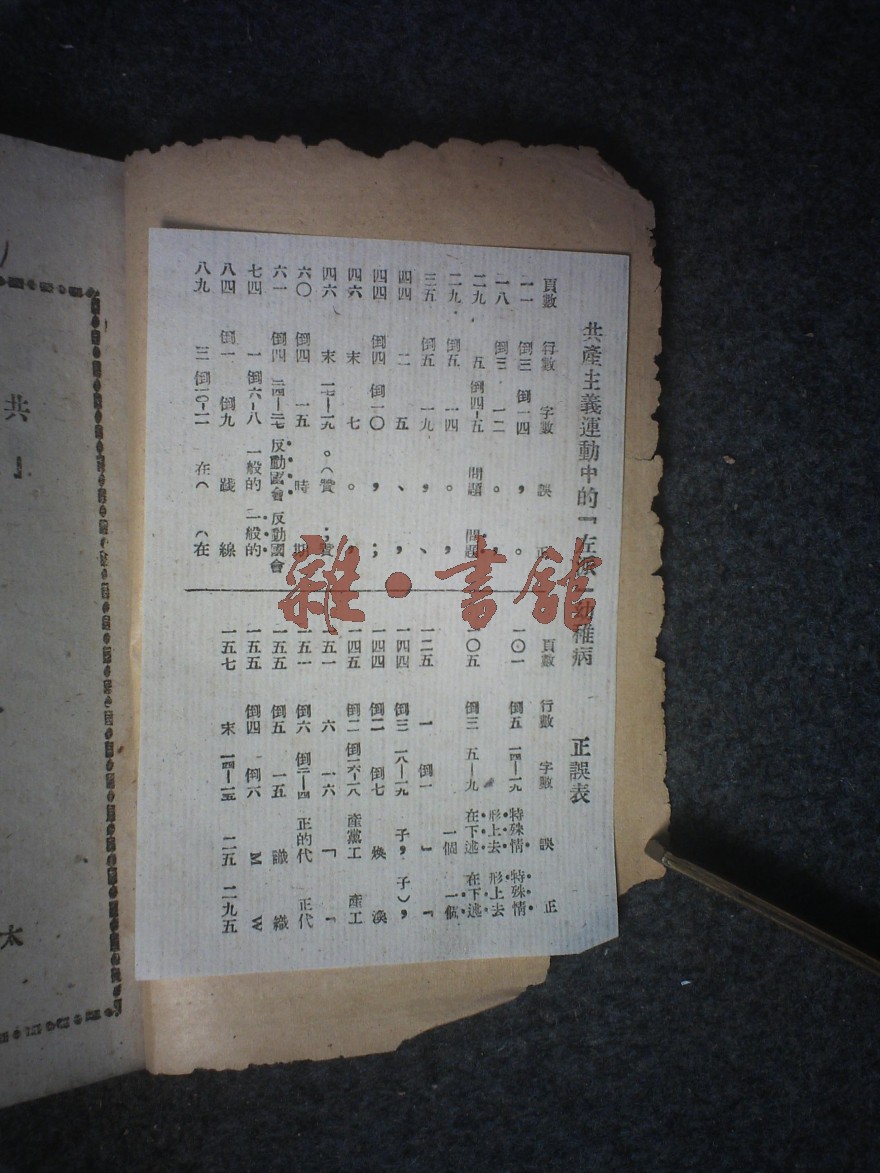 共產主義運動中的「左派」幼稚病 正誤表
頁數 行數 字數 誤 正
一一 倒三 倒一四 ， 。
一八 倒三 一二 。 ，
二九 五 倒四-五 問題 問題
二九 倒五 一四 。 ，
三五 倒五 一九 ， 、
四四 二 五 、 ，
四四 倒四 倒一〇 ， ；
四六 末 七 。 ，
四六 末 一七-一九 。（贊 ；贊
六〇 倒四 一五 時 期
六一 倒四 二四-二七 反動國會 反動國會
七四 一 倒六-八 一般的 一般的
八四 倒一 倒九 踐 線
八九 三 倒一〇-一一 在（ （在
頁數 行數 字數 誤 正
一〇一 倒五 一四-一九 特殊情形上去 特殊情形上去
一〇五 倒三 五-九 在下述一個 在下述一個
一二五 一 倒一 」 「
一四四 倒三 一八-一九 子， 子），
一四四 倒二 倒七 煥 渙
一四五 倒二 倒一六-一八 產黨工 產工
一五一 六 一六 「
一五一 倒六 正的代 正代
一五五 倒五 一五 識 織
一五五 倒四 倒六 M W
一五七 末 一四-一五 二五 二九五
共
太
雜·書館